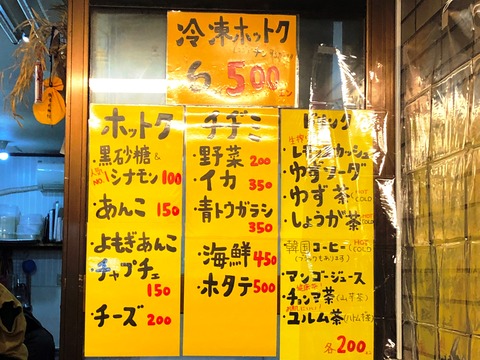 冷凍ホットク
6 500
ホットク
黒砂糖&
人気No.1 シナモン 100
あんこ 150
よもぎあんこ
チャプチェ
150
チーズ 200
チヂミ
野菜 200
イカ 350
青トウガラシ
350
海鮮 450
ホタテ 500
ドリンク
レモンスカッシュ
ゆずソーダ
ゆず茶 HOT COLD
しょうが茶 HOT COLD
韓国コーヒー HOT COLD
マンゴージュース
チョンマ茶(山芋茶)
ユルム茶(ハトムギ茶)
各200